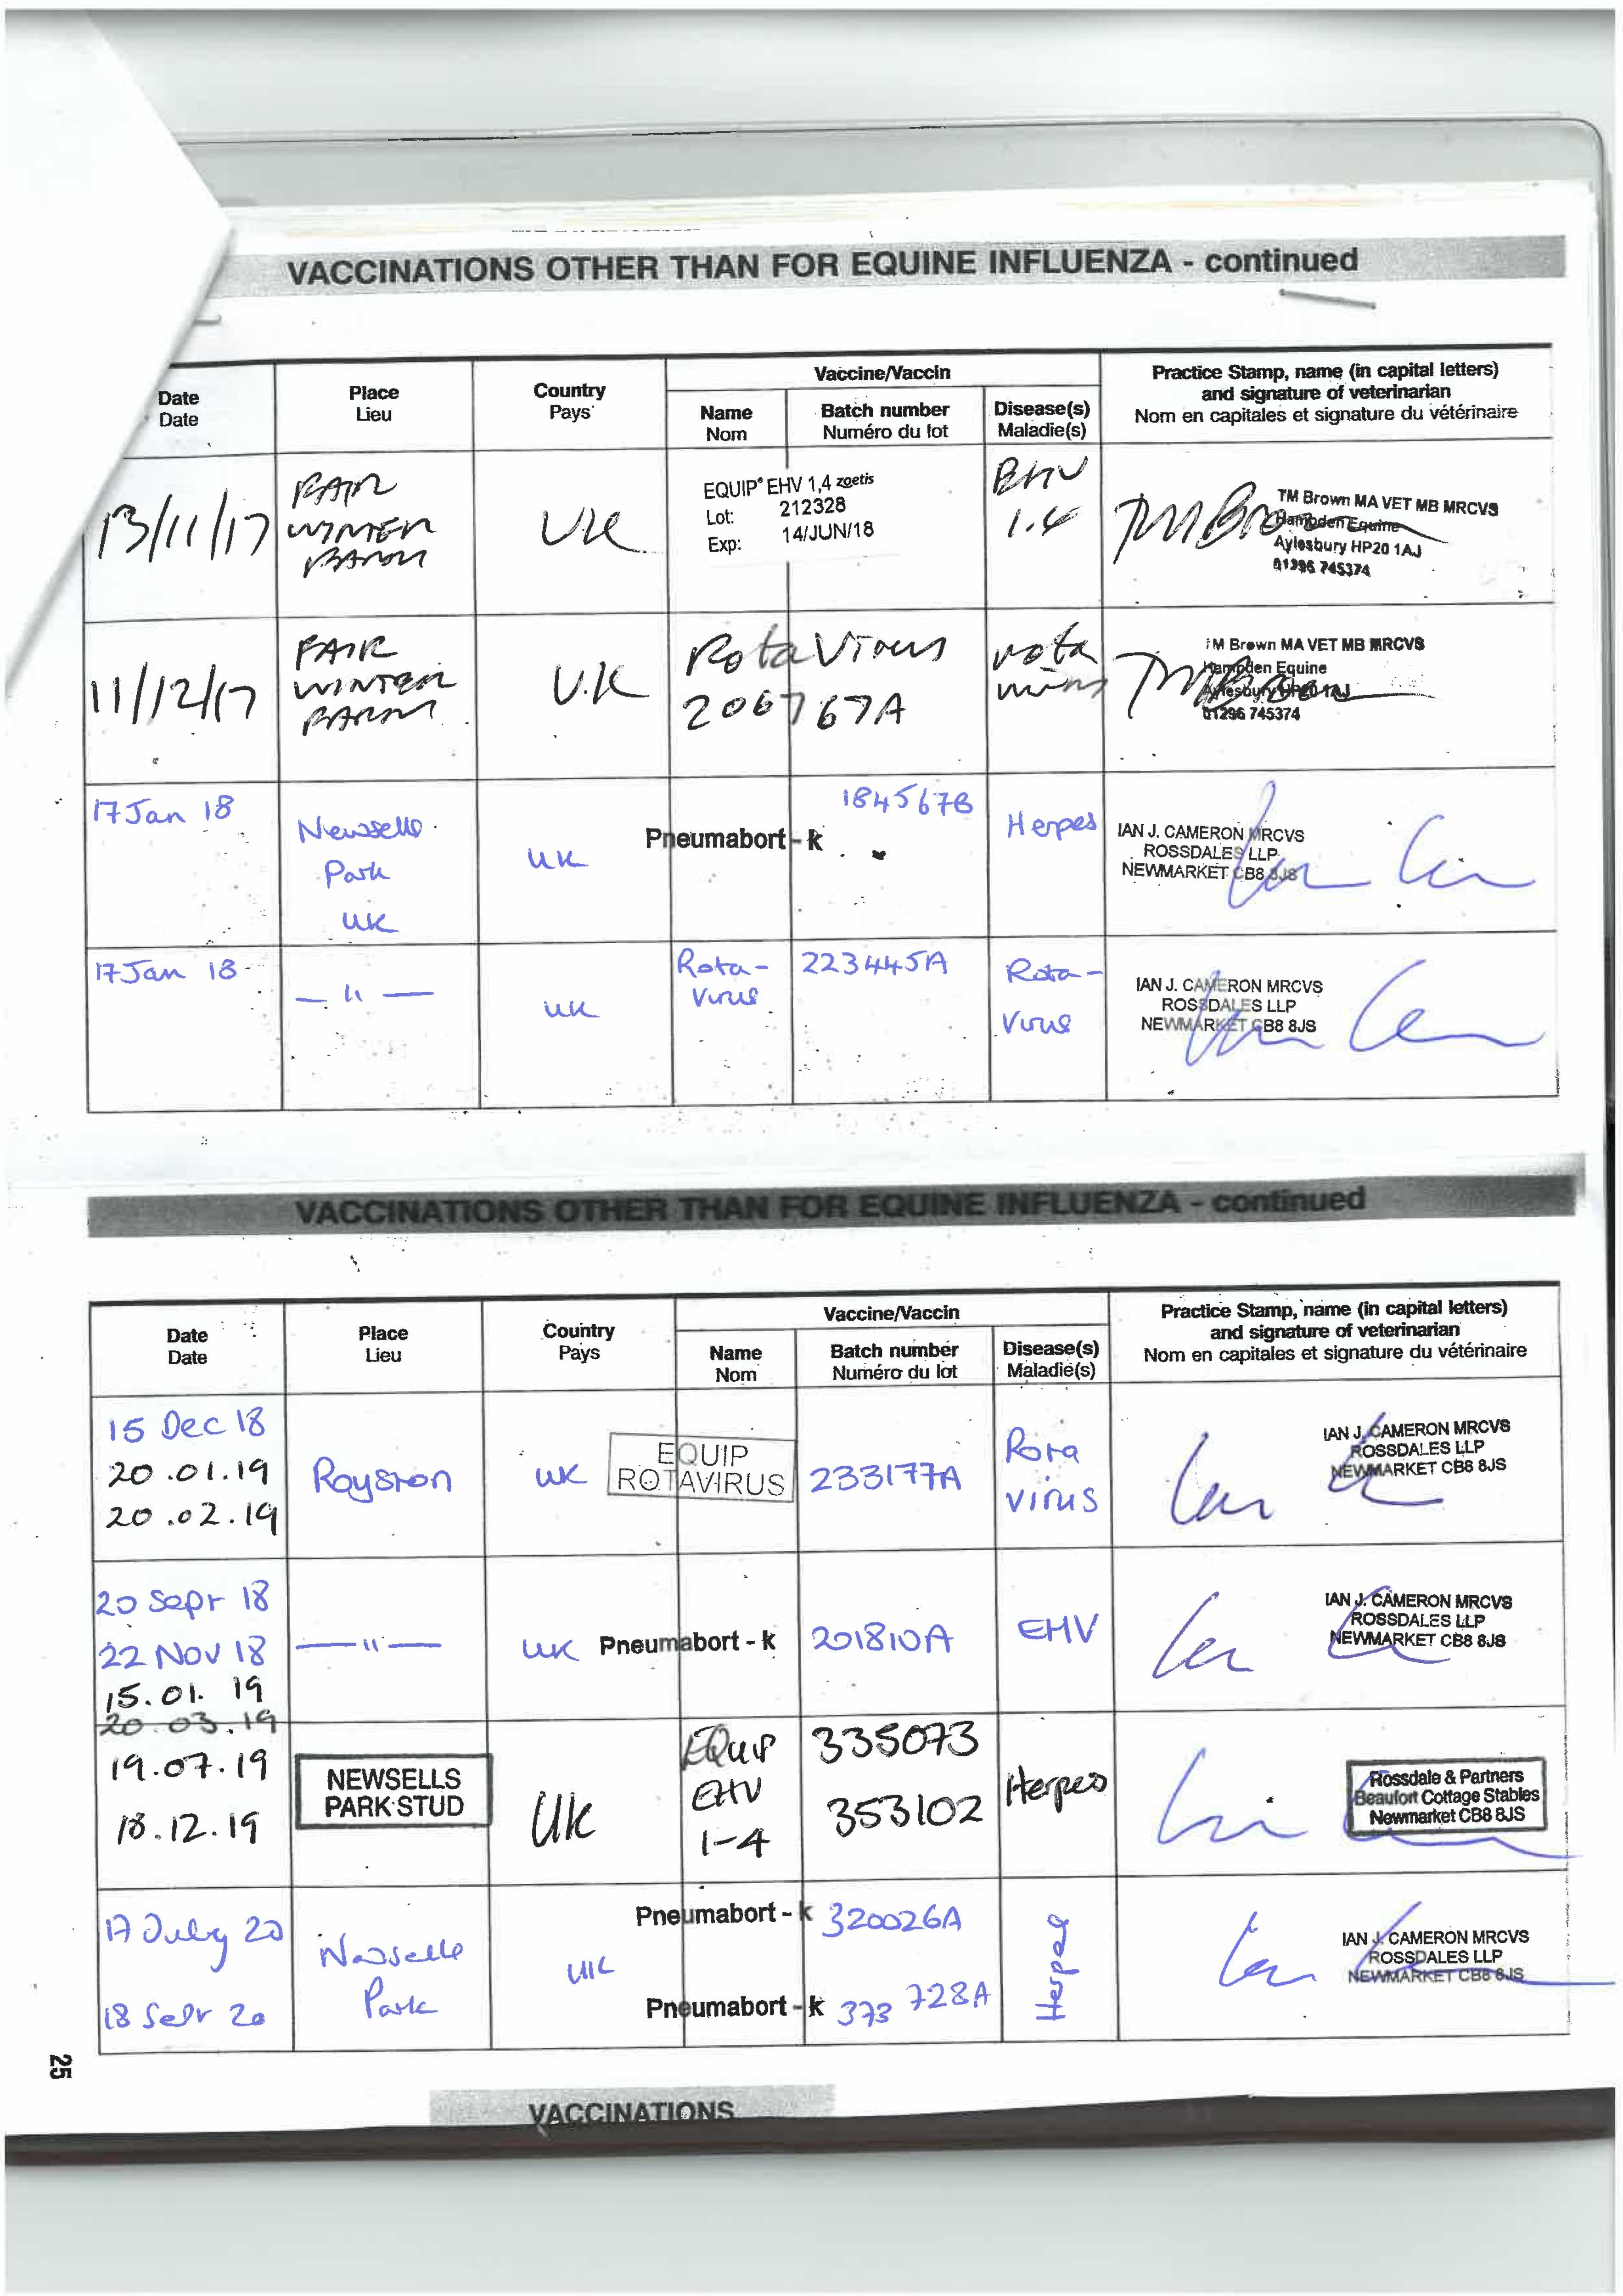 VACCINATIONS OTHER THAN FOR EQUINE INFLUENZA - continued
Date
Date
Place
Lieu
Country
Pays
Vaccine/Vaccin
Name
Nom
Batch number
Numéro du lot
Disease(s)
Maladie(s)
Practice Stamp, name (in capital letters)
and signature of veterinarian
Nom en capitales et signature du vétérinaire
13/11/17
FAIR
WINTER
FARM
UK
EQUIP® EHV 1,4 zoetis
Lot: 212328
Exp: 14/JUN/18
EHV
1.4
TM Brown MA VET MB MRCVS
Hampden Equine
Aylesbury HP20 1AJ
01296 745374
11/12/17
FAIR
WINTER
FARM
U.K
RotaVirus
206767A
rota
virus
TM Brown MA VET MB MRCVS
Hampden Equine
Aylesbury HP20 1AJ
01296 745374
17 Jan 18
Newsells
Park
UK
UK
Pneumabort - k
184567B
Herpes
IAN J. CAMERON MRCVS
ROSSDALES LLP
NEWMARKET CB8 8JS
17 Jan 18
— " —
UK
Rota-
Virus
223445A
Rota-
Virus
IAN J. CAMERON MRCVS
ROSSDALES LLP
NEWMARKET CB8 8JS
VACCINATIONS OTHER THAN FOR EQUINE INFLUENZA - continued
Date
Date
Place
Lieu
Country
Pays
Vaccine/Vaccin
Name
Nom
Batch number
Numéro du lot
Disease(s)
Maladie(s)
Practice Stamp, name (in capital letters)
and signature of veterinarian
Nom en capitales et signature du vétérinaire
15 Dec 18
20.01.19
20.02.19
Royston
UK
EQUIP
ROTAVIRUS
233177A
Rota
virus
IAN J. CAMERON MRCVS
ROSSDALES LLP
NEWMARKET CB8 8JS
20 Sept 18
22 Nov 18
15.01.19
20.03.19
— " —
UK
Pneumabort - k
201810A
EHV
IAN J. CAMERON MRCVS
ROSSDALES LLP
NEWMARKET CB8 8JS
19.07.19
18.12.19
NEWSELLS
PARK STUD
UK
EQuip
EHV
1-4
335073
353102
Herpes
Rossdale & Partners
Beaufort Cottage Stables
Newmarket CB8 8JS
17 July 20
18 Sept 20
Newsells
Park
UK
Pneumabort - k
320026A
Pneumabort - k
373728A
Herpes
IAN J. CAMERON MRCVS
ROSSDALES LLP
NEWMARKET CB8 8JS
25
VACCINATIONS